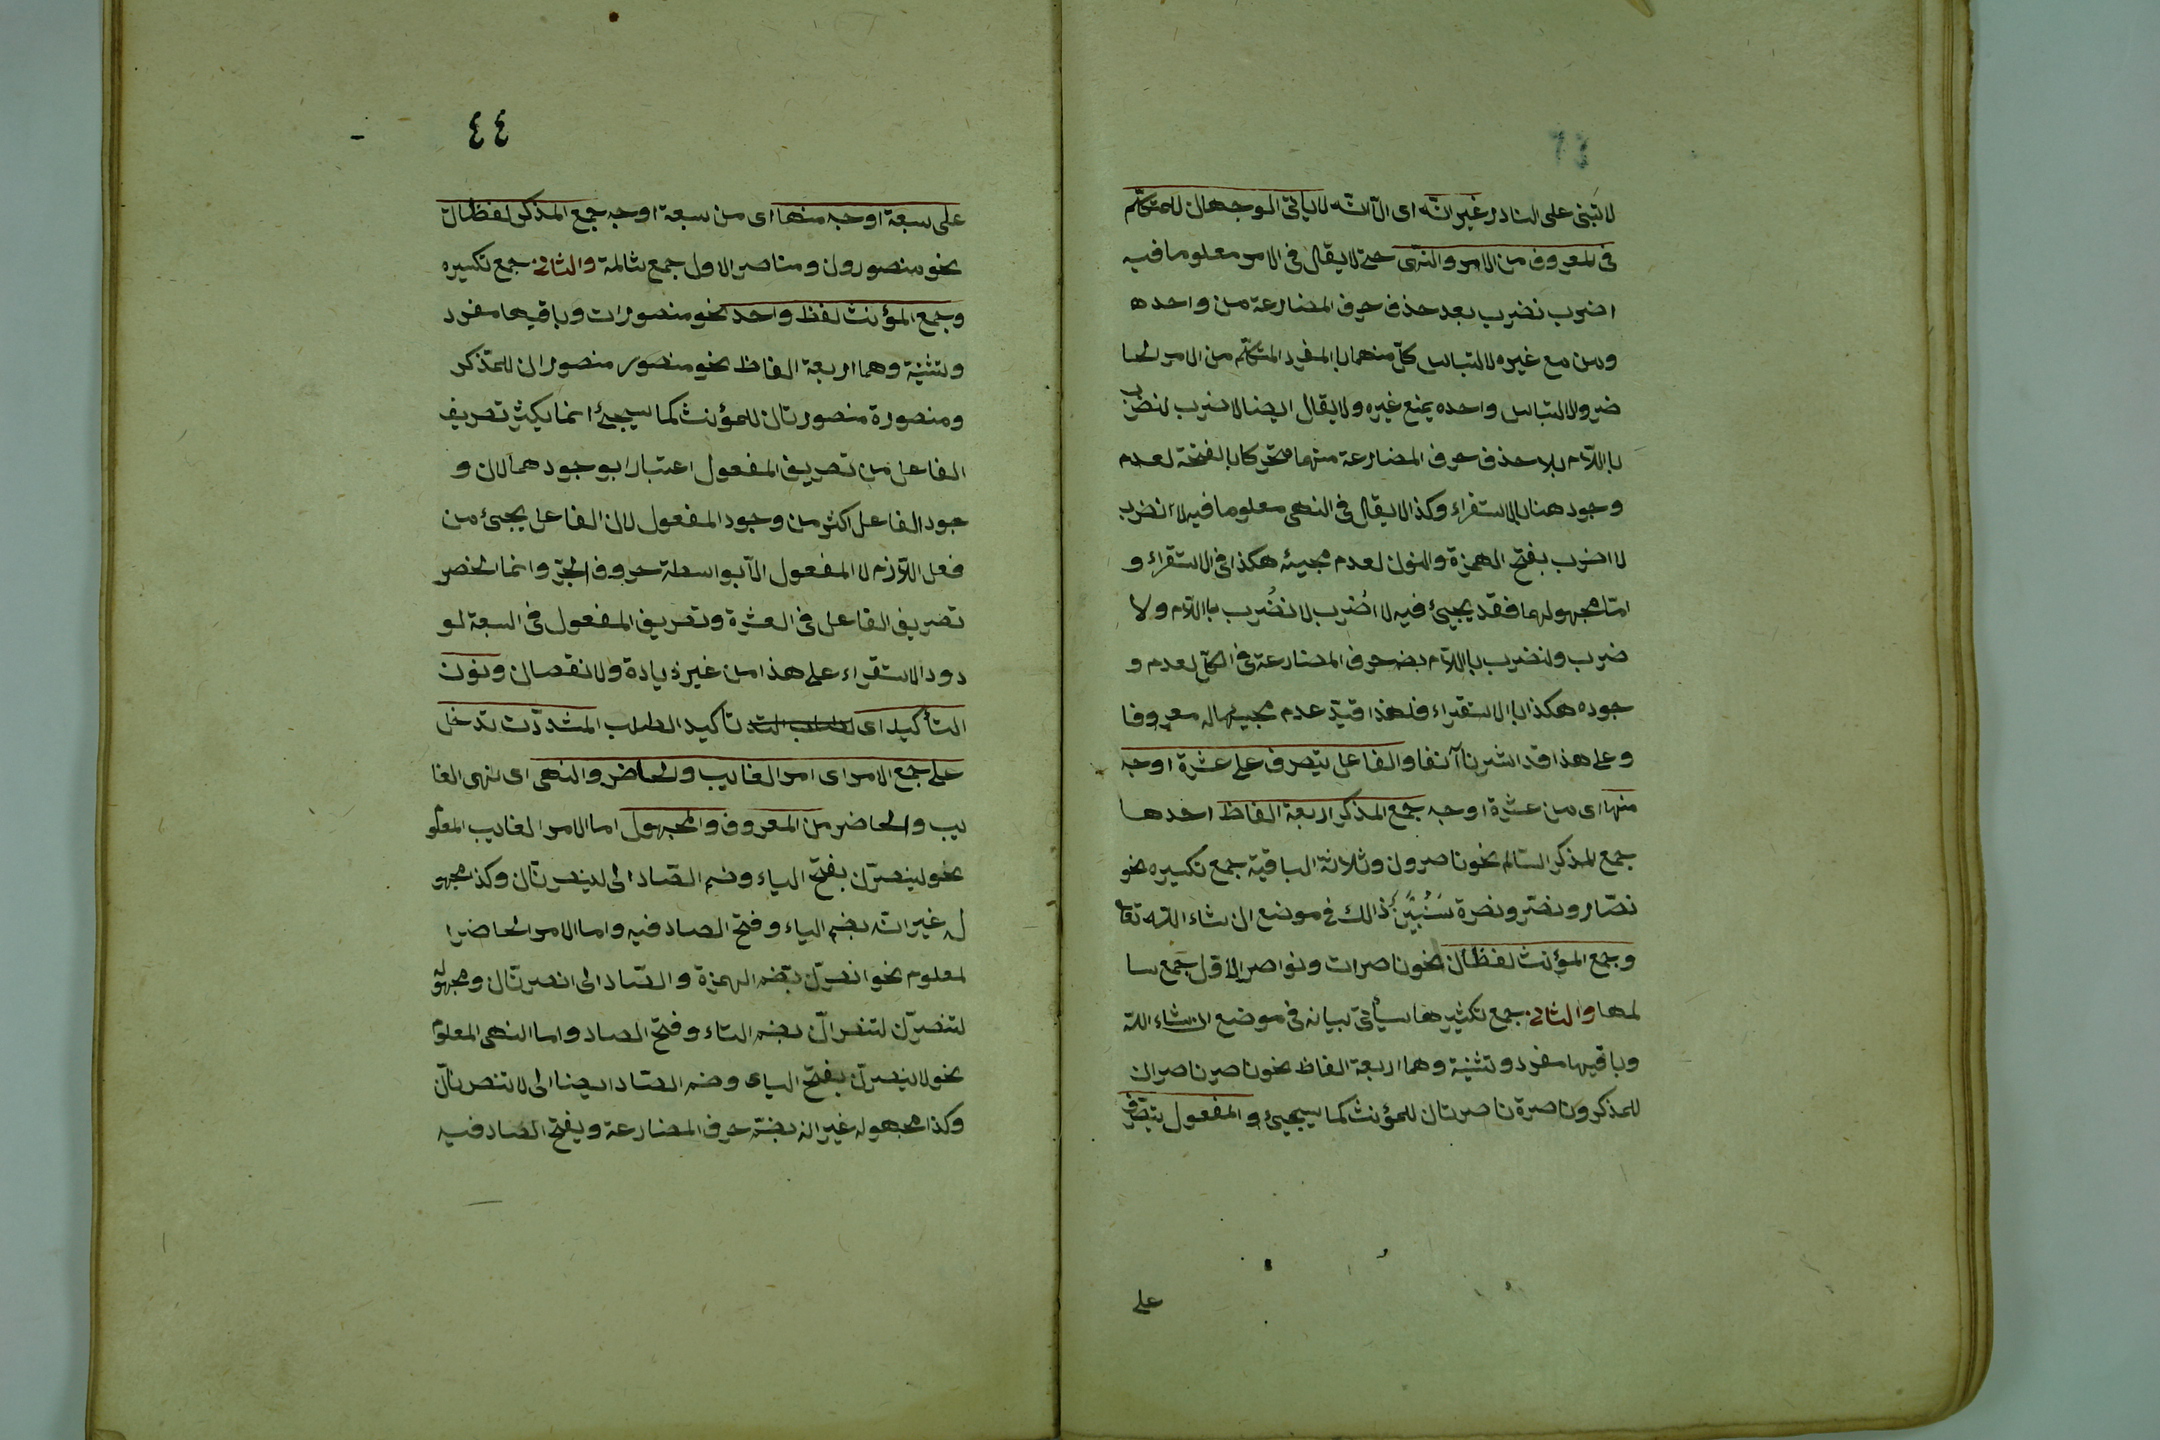 لا تبنى على النادر غير انّه اى الّا انّه لا ياتى الوجهان للمتكلّم
فى المعروف من الامر والنهى حتى لا يقال فى الامر معلوما فيه
اضرب نضرب بعد حذف حرف المضارعة من واحده
ومن مع غيره لالتباس كلّ منهما با المفرد المتكلّم من الامر الحا
ضر ولالتباس واحده يمنع غيره ولا يقال ايضا لاضرب لنضرب
با اللّام بلا حذف حرف المضارعة منهما متحركا بالفتحة لعدم
وجود هنا بالاستقراء وكذا لا يقال فى النهى معلوما فيه لا نضرب
لا اضرب بفتح الهمزة والنون لعدم مجيئه هكذا فى الاستقراء و
امّا مجهولهما فقد يجيئ فيه لا اُضرب لا نُضرب با اللّام ولا
ضرب ولنضرب با اللّام بضم حرف المضارعة فى الكلّ لعدم و
جوده هكذا با الاستقراء فلهذا قيّد عدم مجيئهما له معروفا
وعلى هذا قد اشرنا آنفا والفاعل يتصرف على عشرة اوجه
منها اى من عشرة اوجه جمع المذكر اربعة الفاظ احدها
جمع المذكر السّالم نحو ناصرون وثلاثة الباقية جمع تكسيره نحو
نصّار ونصّر ونصرة سَنُبيّن ذالك فى موضع ان شاء اللّه تعا
وجمع المؤنث لفظان نحو ناصرات ونواصر الاوّل جمع سا
لمها والثانى جمع تكثيرها سيأتى بيانه فى موضع ان شاء اللّه
وباقيها مفرد وتثنية وهما اربعة الفاظ نحو ناصر ناصران
للمذكر وناصرة ناصرتان للمؤنث كما سيجيئ والمفعول يتصرّف
على
٤٤
على سبعة اوجه منها اى من سبعة اوجه جمع المذكر لفظان
نحو منصورون ومناصر الاول جمع سالمة والثانى جمع تكسيره
وجمع المؤنث لفظ واحد نحو منصورات وباقيها مفرد
وتثنية وهما اربعة الفاظ نحو منصور منصوران للمذّكر
ومنصورة منصورتان للمؤنث كما سيجئ انما يكثر تصريف
الفاعل من تصريف المفعول اعتبارا بوجودهما لان و
جود الفاعل اكثر من وجود المفعول لان الفاعل يجيئ من
فعل اللّازم لا المفعول الّا بواسطة حروف الجرّ وانما انحصر
تصريف الفاعل فى العشرة وتصريف المفعول فى السبعة لو
رود الاستقراء على هذا من غير زيادة ولا نقصان ونون
التأكيد اى تأكيد الطلب المشدّدت تدخل
على جمع الامر اى امر الغايب والحاضر والنهى اى نهى الغا
يب والحاضر من المعروف والمجهول اما الامر الغايب المعلو
نحو لينصرنّ بفتح الياء وضم الصّاد الى لينصرنانّ وكذا مجهو
له غير انّه بضم الياء وفتح الصاد فيه واما الامر الحاضر ا
لمعلوم نحو انصرنّ بضم الهمزة والصّاد الى انصرنانّ ومجهوله
لتنصرنّ لتنصرانّ بضم التاء وفتح الصاد واما النهى المعلوم
نحو لا ينصرنّ بفتح الياء وضم الصّاد ايضا الى لا تنصرنانّ
وكذا مجهوله غير انه بضمّ حرف المضارعة وبفتح الصاد فيه